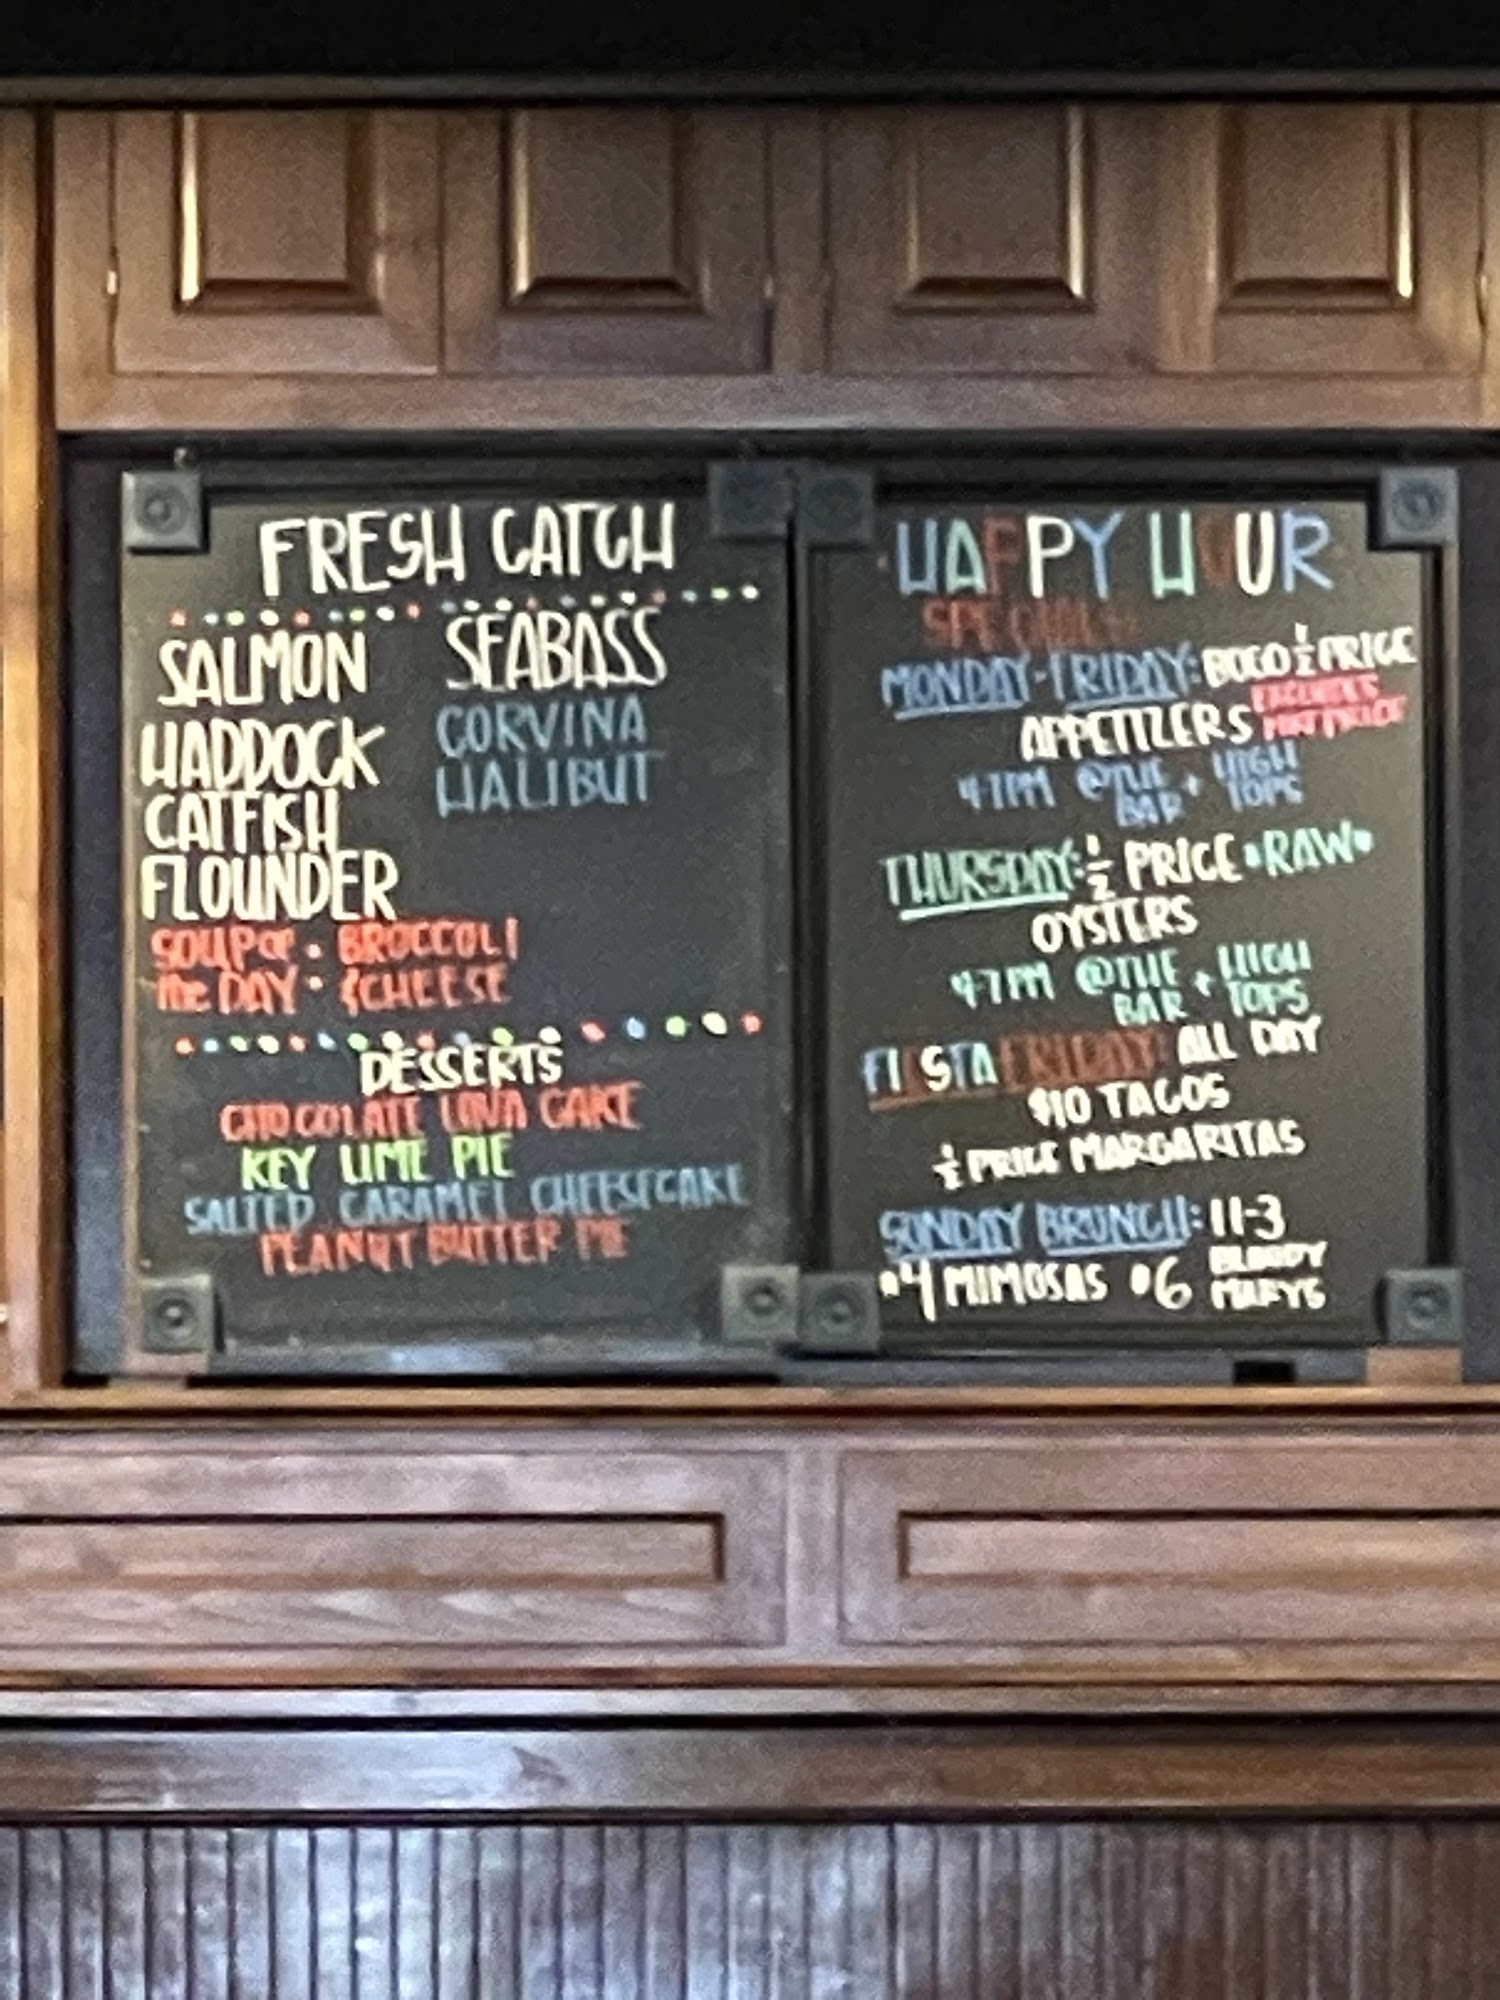 FRESH CATCH
SALMON
HADDOCK
CATFISH
FLOUNDER
SEABASS
CORVINA
HALIBUT
SOUP OF : BROCCOLI
THE DAY : & CHEESE
DESSERTS
CHOCOLATE LAVA CAKE
KEY LIME PIE
SALTED CARAMEL CHEESECAKE
PEANUT BUTTER PIE
HAPPY HOUR
SPECIALS
MONDAY-FRIDAY: BOGO ½ PRICE
APPETIZERS EXCLUDES
4-7PM @ THE BAR + HIGH TOPS
THURSDAY: ½ PRICE •RAW•
OYSTERS
4-7PM @ THE BAR + HIGH TOPS
FIESTA FRIDAY: ALL DAY
$10 TACOS
½ PRICE MARGARITAS
SUNDAY BRUNCH: 11-3
$4 MIMOSAS $6 BLOODY MARYS